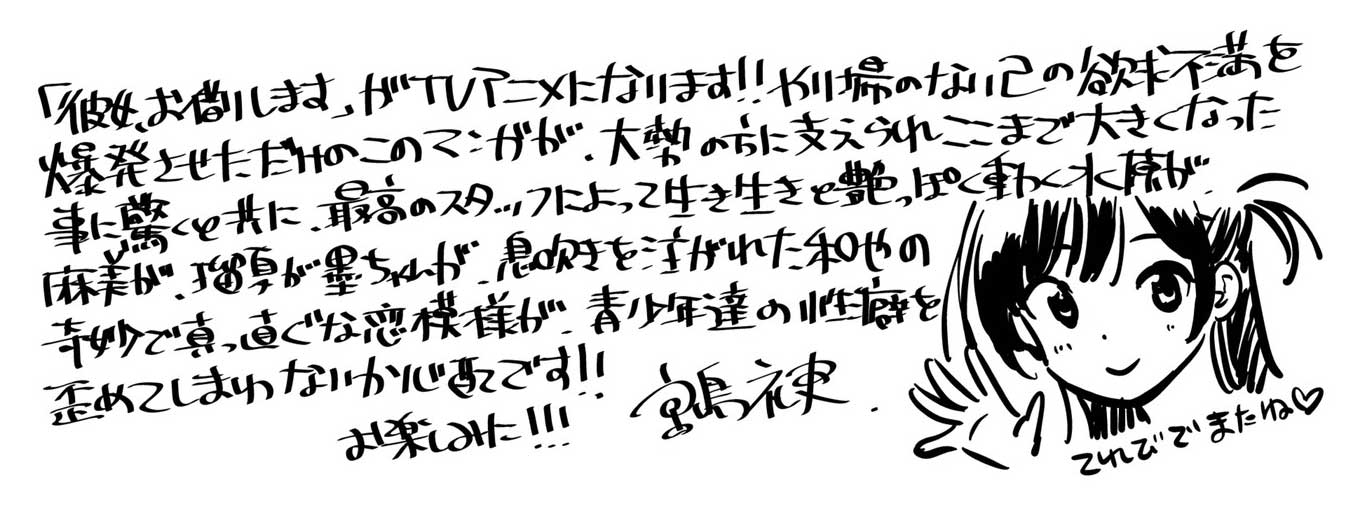 「彼女、お借りします」がTVアニメになります!!やり場のない己の欲求不満を
爆発させただけのこのマンガが、大勢の方に支えられここまで大きくなった
事に驚くと共に、最高のスタッフによって生き生きと艶っぽく動く水原が、
麻美が、瑠夏が墨ちゃんが、息吹きを注がれた和也の
奇妙で真っ直ぐな恋模様が、青少年達の性癖を
歪めてしまわないか心配です!!
お楽しみに!!!
宮島礼吏.
てれびでまたね♡